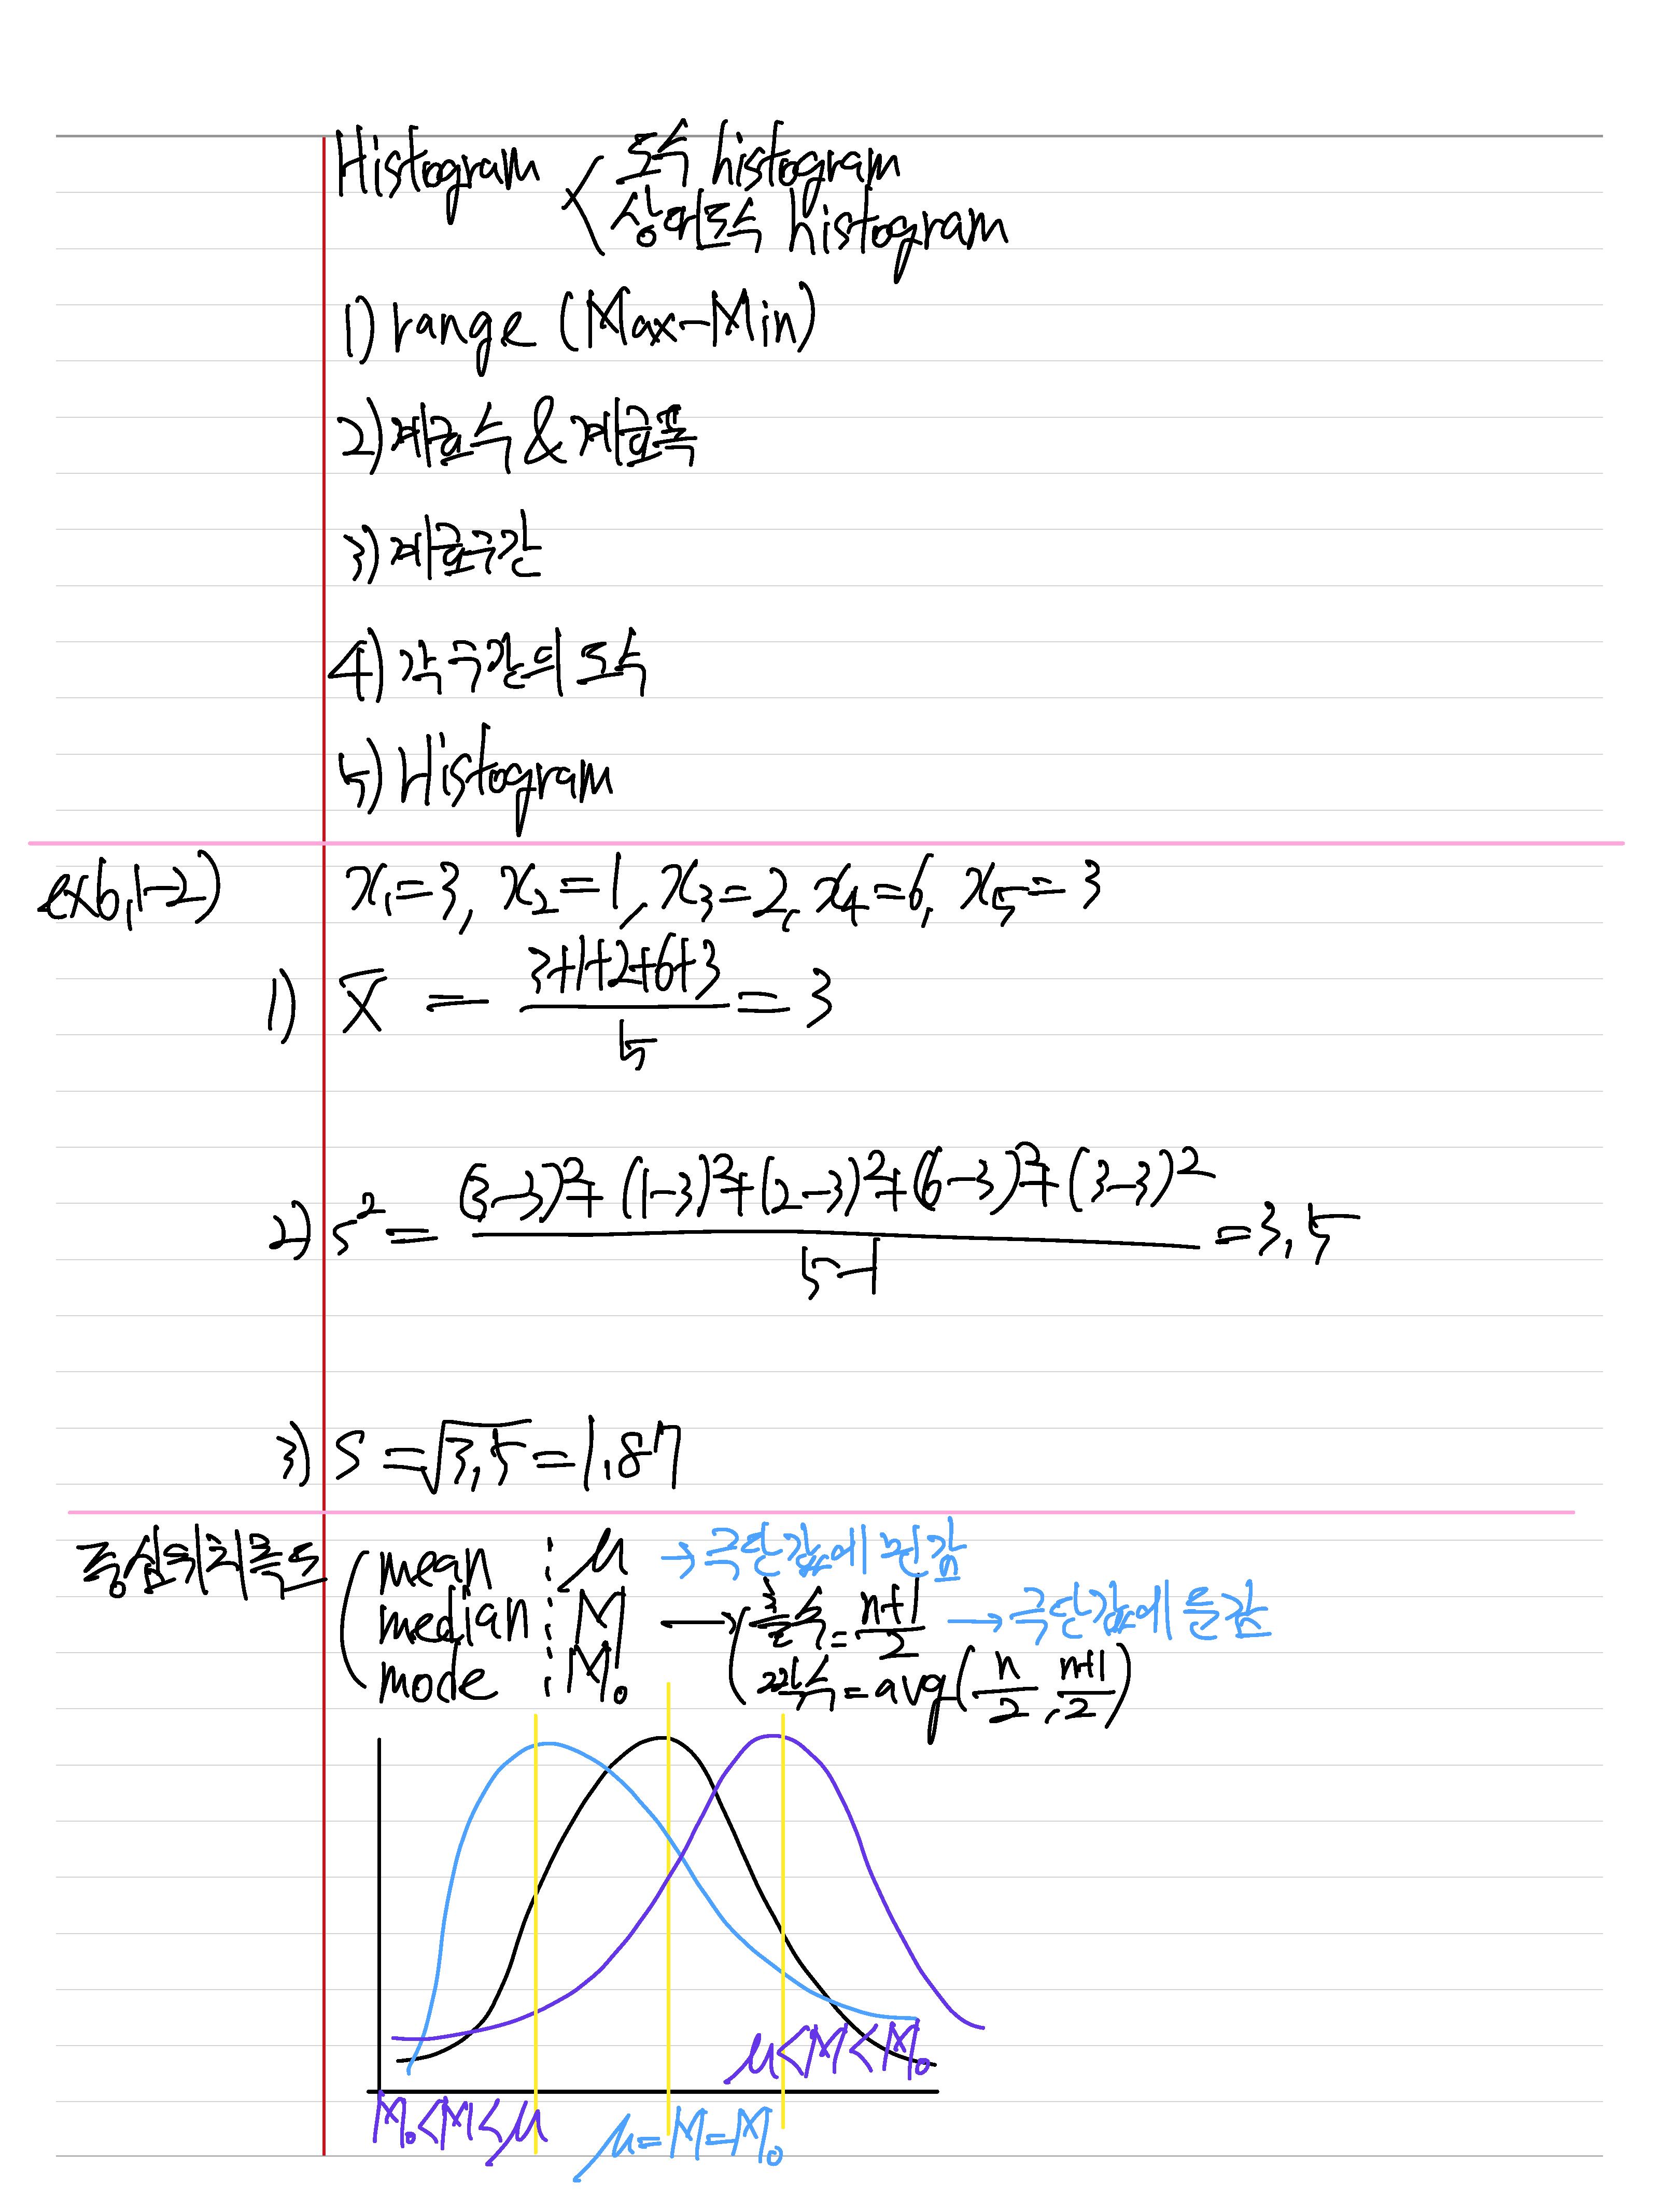 Histogram < 도수 histogram
상대도수 histogram
1) range (Max-Min)
2) 계급수 & 계급폭
3) 계급구간
4) 각 구간의 도수
5) Histogram
ex6,1-2) x₁=3, x₂=1, x₃=2, x₄=6, x₅=3
1) x̄ = (3+1+2+6+3)/5 = 3
2) s² = ((3-3)²+(1-3)²+(2-3)²+(6-3)²+(3-3)²)/(5-1) = 3,5
3) S = √3,5 = 1,87
중심위치측도 ( mean : μ → 극단값에 민감
median : M → ( 홀수 = (n+1)/2 → 극단값에 둔감
mode : M₀ 짝수 = avg(n/2, (n+1)/2)
μ<M<M₀
M₀<M<μ μ=M=M₀